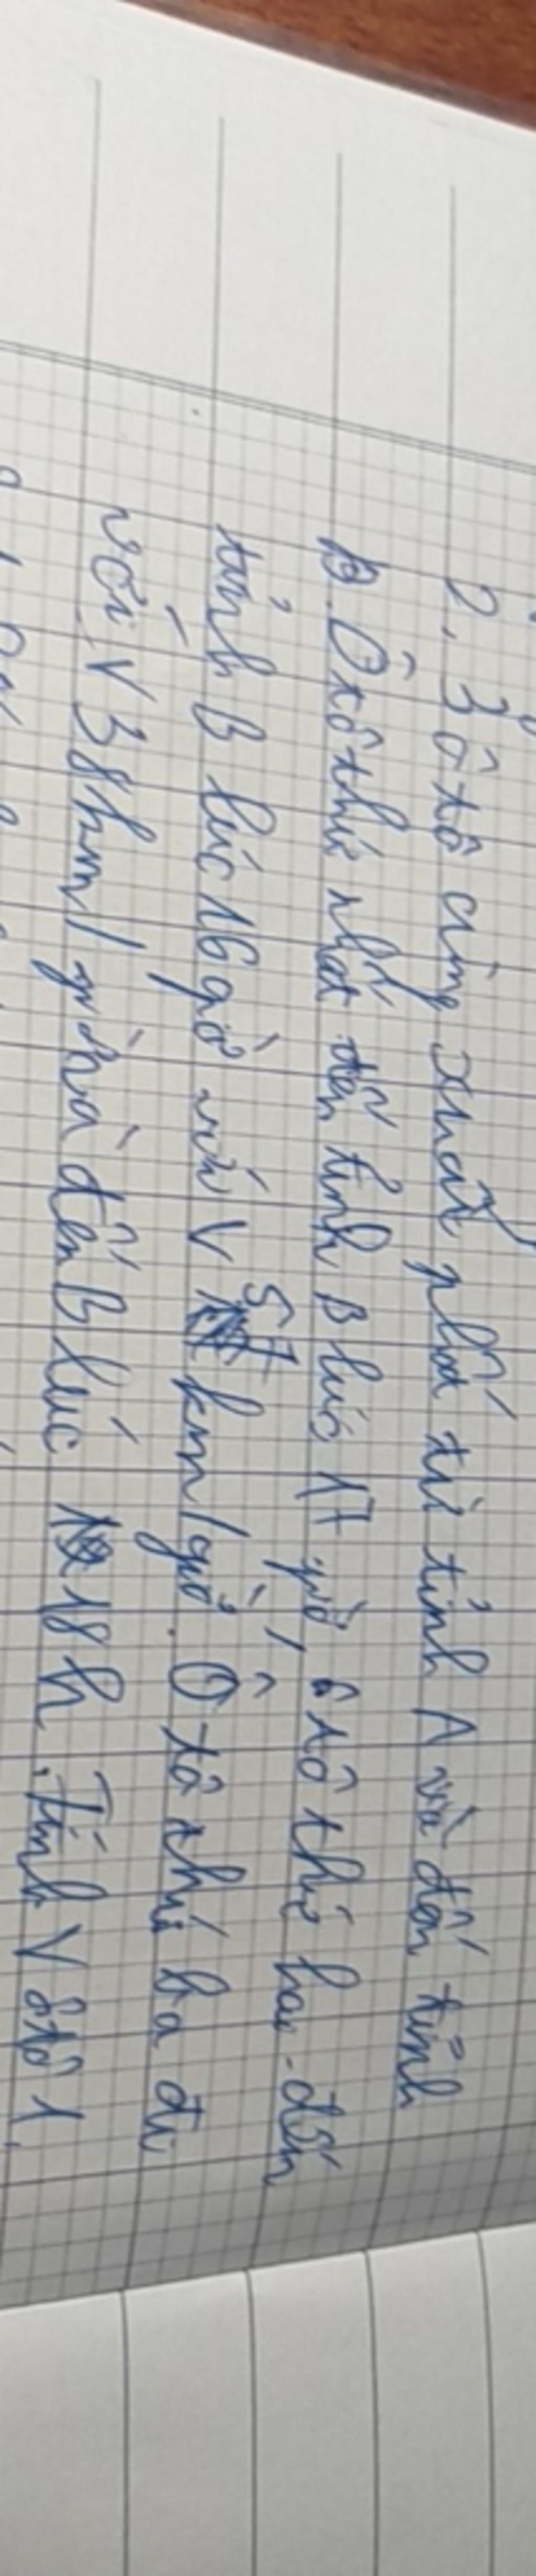 2. 3 ô tô cùng xuất phát từ tỉnh A và đến tỉnh
B. Ô tô thứ nhất đến tỉnh B lúc 17 giờ, ô tô thứ hai đến
tỉnh B lúc 16 giờ với V 57 km/giờ. Ô tô thứ ba đi
với V 38km/giờ và đến B lúc 18h. Tính V ôtô 1.